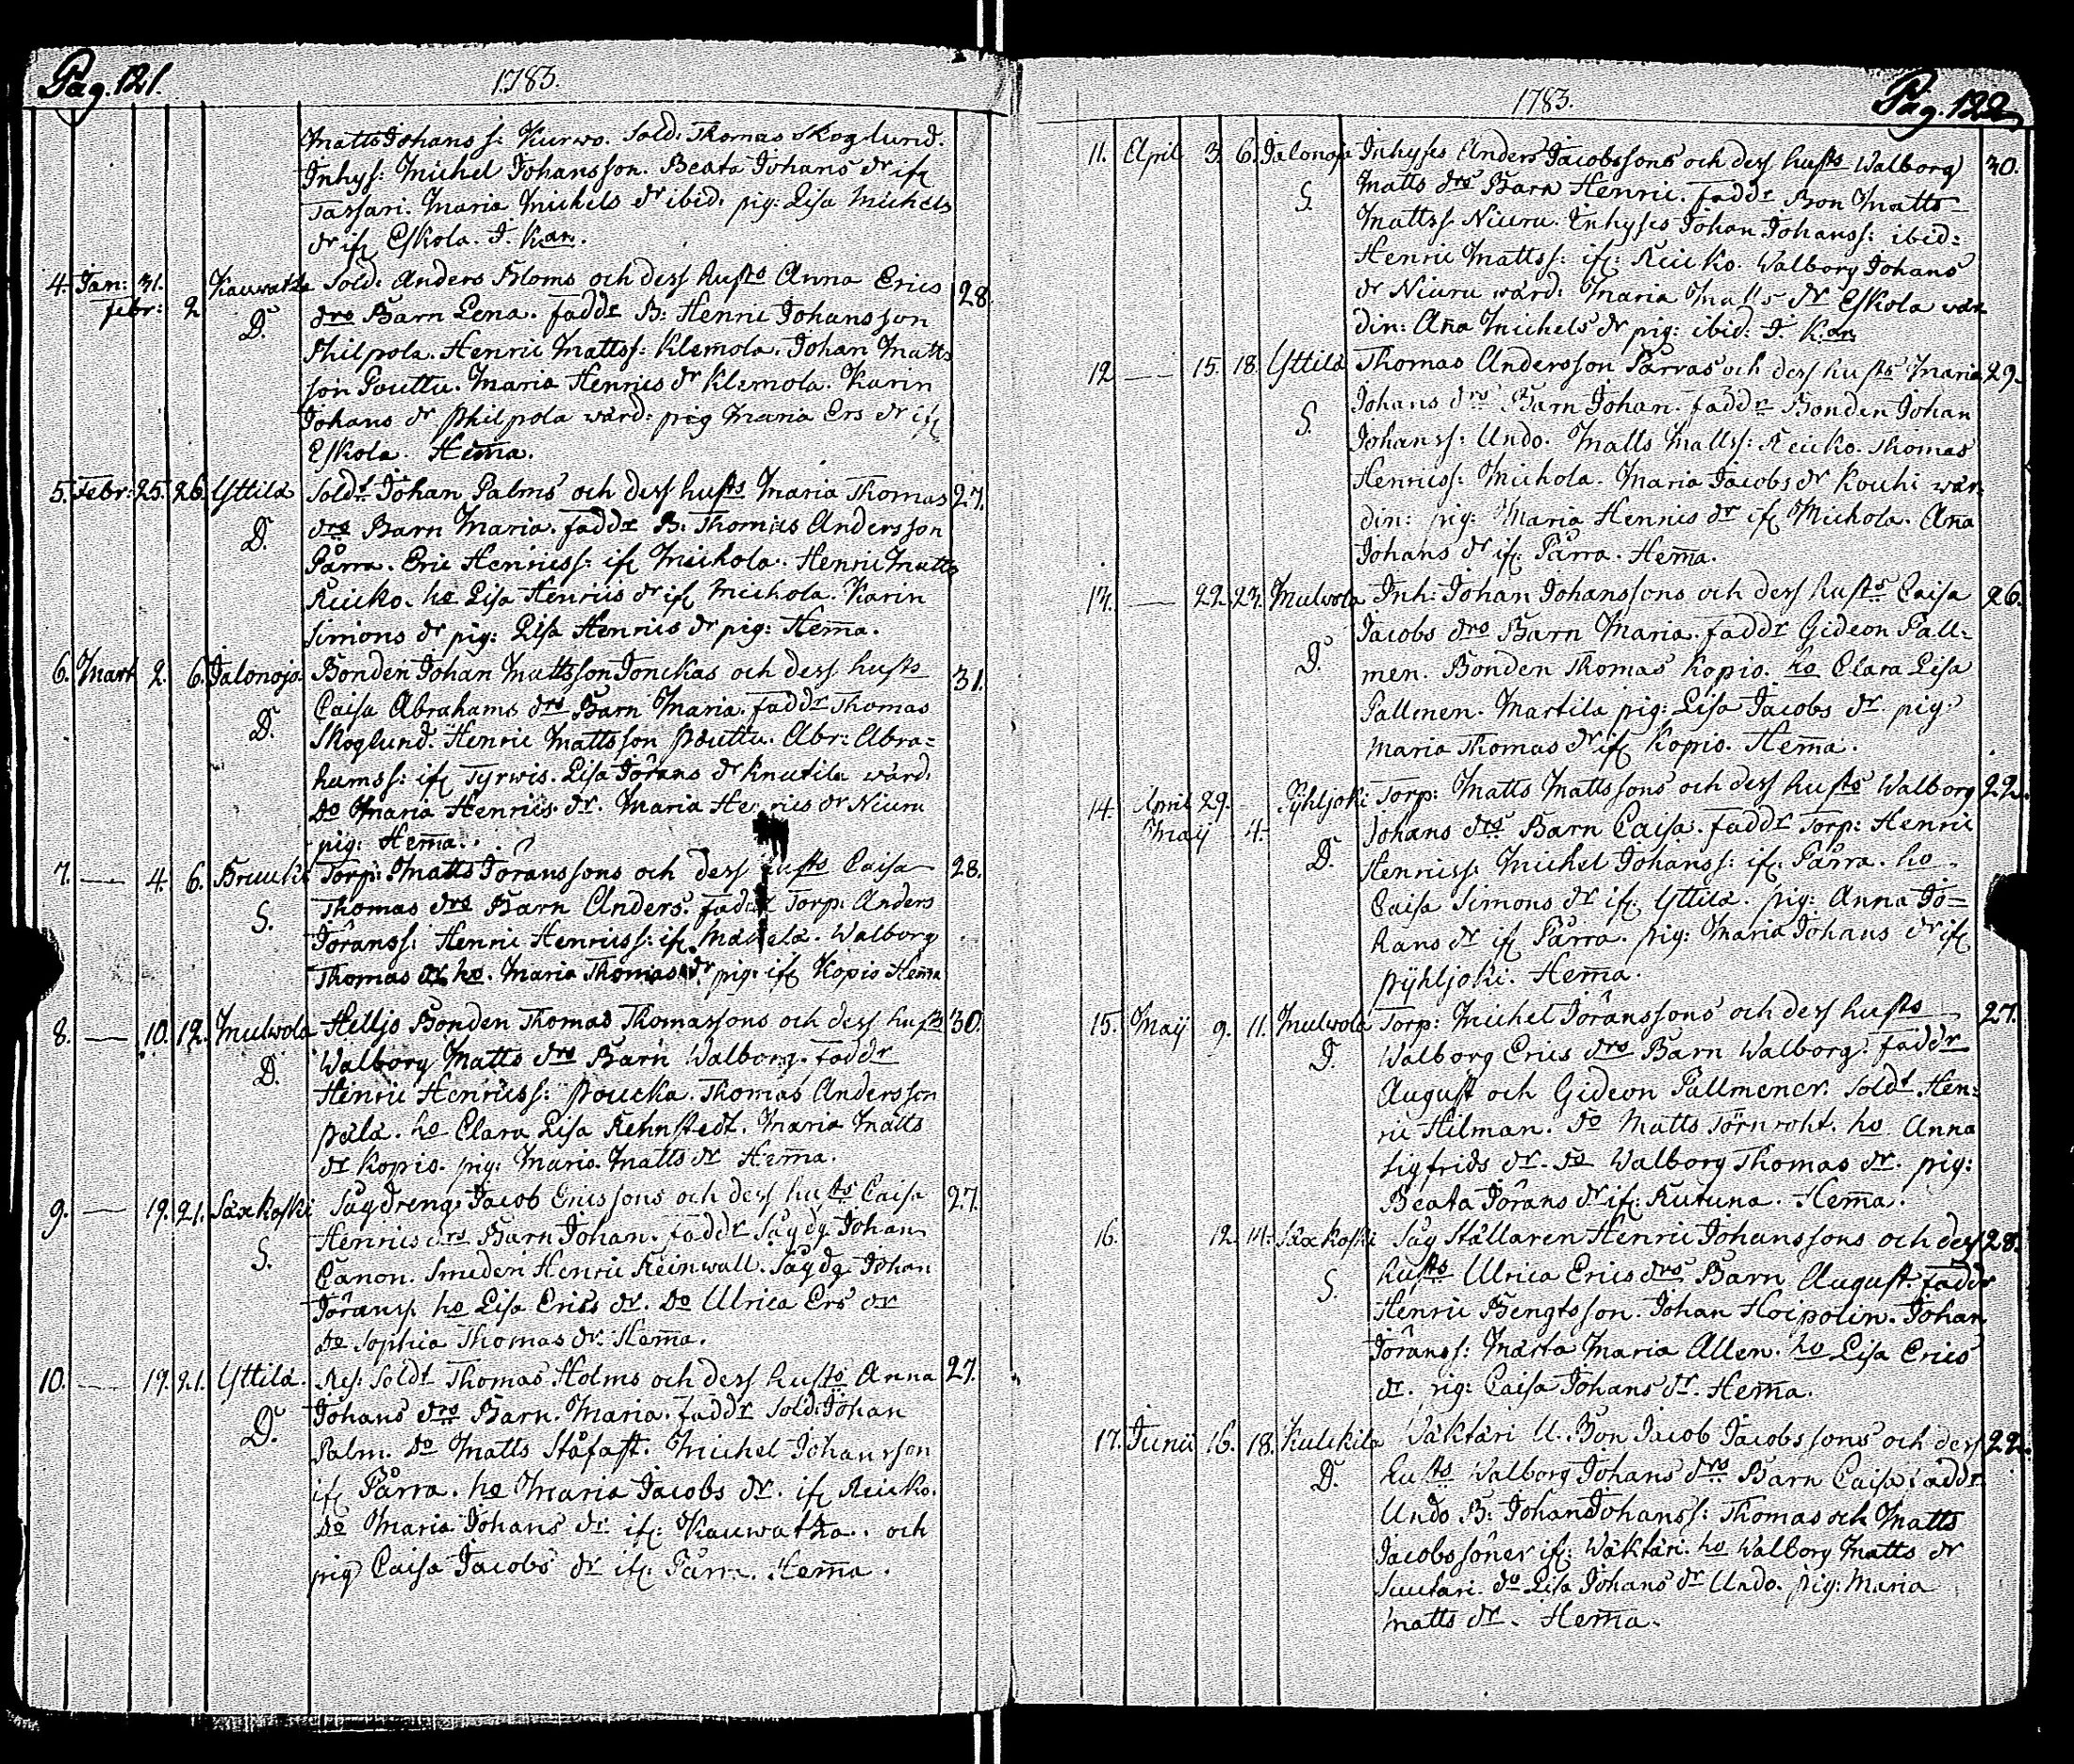 Pag. 121.
1783.
Matts Johans s: Kurwo. Sold: Thomas Skoglund.
Inhys: Michel Johansson. Beata Johans dr ifr
Tassari. Maria Michels dr ibid. pig: Lisa Michels
dr ifr Eskola. I. Kan.
4. Jan: 31. Kauwatza Sold: Anders Bloms och dess hust͟s Anna Erics 28.
Febr: 2 D. drs Barn Lena. Faddr B: Henric Johansson
Philpola. Henric Mattss: Klemola. Johan Matts
son Pouttu. Maria Henrics dr Klemola. Karin
Johans dr Philpola wärd: pig Maria Ers dr ifr
Eskola. Hem̄a.
5. Febr: 25. 26. Yttilä Soldt Johan Palms och dess husts Maria Thomas 27.
D. drs Barn Maria. Faddr B. Thomas Andersson
Pärra. Eric Henricss: ifr Michola. Henric Matts
Reicko. ho Lisa Henrics dr ifr Michola. Karin
Simons dr pig: Lisa Henrics dr pig: Hem̄a.
6. Mart 2. 6. Jalonoja. Bonden Johan Mattsson Jonckas och dess husts 31.
D. Caisa Abrahams drs Barn Maria. Faddr Thomas
Skoglund. Henric Mattsson Pouttu. Abr: Abra=
hamss: ifr Tyrwis. Lisa Jörans dr Knutila wärd.
Do Maria Henrics dr. Maria Henrics dr Niuru
pig: Hem̄a.
7. — 4. 6. Bruuki Torp: Matts Jöranssons och dess husts Caisa 28.
S. Thomas drs Barn Anders. Faddr Torp: Anders
Jöranss: Henric Henricss: ifr Mäkelä. Walborg
Thomas dr ho. Maria Thomas dr pig: ifr Kopio Hem̄a
8. — 10. 12. Mulwola Helljo Bonden Thomas Thomassons och dess husts 30.
D. Walborg Matts drs Barn Walborg. Faddr
Henric Henricss: Poucka. Thomas Andersson
Pälä. ho Clara Lisa Rehnstedt. Maria Matts
dr Kopio. pig: Maria Matts dr Hem̄a.
9. — 19. 21. Säxkoski Sågdreng: Jacob Ericssons och dess husts Caisa 27.
S. Henrics drs Barn Johan. Faddr Sågdg Johan
Canon. Smeden Henric Reinwall. Sågdg Johan
Jöranss. ho Lisa Erics dr. Do Ulrica Ers dr
Do Sophia Thomas dr. Hem̄a.
10. — 19. 21. Yttilä. Res: Soldt Thomas Holms och dess husts Anna 27.
D. Johans drs Barn. Maria. Faddr Sold: Johan
Palm. Do Matts Ståfast. Michel Johansson
ifr Pärra. ho Maria Jacobs dr. ifr Reicko.
Do Maria Johans dr ifr: Kauwatza. och
pig Caisa Jacobs dr ifr. Pärra. Hem̄a.
1783.
Pag. 122
11. April 3. 6. Jalonoja Inhyses Anders Jacobssons och dess husts Walborg 30.
S. Matts drs Barn Henric. Faddr Bon Matts
Mattss Niuru. Inhyses Johan Johanss: ibid:
Henric Mattss: ifr: Reicko. Walborg Johans
dr Niuru wärd: Maria Matts dr Eskola wär
din: An̄a Michels dr pig: ibid: I. Kan.
12 — 15. 18. Yttilä Thomas Andersson Pärras och dess husts Maria 29.
S. Johans drs Barn Johan. Faddr Bonden Johan
Johanss: Undo. Matts Mattss: Reicko. Thomas
Henricss: Michola. Maria Jacobs dr Kouhi wär:
din: pig: Maria Henrics dr ifr Michola. An̄a
Johans dr ifr: Pärra. Hem̄a.
13. — 22. 23. Mulwola Inh: Johan Johanssons och dess husts Caisa 26.
D. Jacobs drs Barn Maria. Faddr Gideon Pall:
men. Bonden Thomas Kopio. ho Clara Lisa
Pallmen. Martila pig: Lisa Jacobs dr. pig:
Maria Thomas dr ifr Kopio. Hem̄a.
14. April 29. Pyhljoki Torp: Matts Mattssons och dess husts Walborg 22.
Maij 4. D. Johans drs Barn Caisa. Faddr Torp: Henric
Henricss: Michel Johanss: ifr. Pärra. ho.
Caisa Simons dr ifr. Yttilä. pig: Anna Jo=
hans dr ifr Pärra. pig: Maria Johans dr ifr
Pyhljoki. Hem̄a.
15. Maij 9. 11. Mulwola Torp: Michel Jöranssons och dess husts 27.
D. Walborg Erics drs Barn Walborg. Faddr
August och Gideon Pallmener. Soldt Hen:
ric Hilman. Do Matts Törnroht. ho Anna
Sigfrids dr. Do Walborg Thomas dr. pig:
Beata Jörans dr ifr: Rutuna. Hem̄a.
16. 12. 14. Säxkoski Såg Ställaren Henric Johanssons och dess 28.
S. husts Ulrica Erics drs Barn August. Faddr
Henric Bengtsson. Johan Hoipolin. Johan
Jöranss: Märta Maria Allen. ho Lisa Erics
dr. pig: Caisa Johans dr. Hem̄a.
17. Junii 16. 18. Kulckila Wäktäri U. Bon Jacob Jacobssons och dess 22.
D. husts Walborg Johans drs Barn Caisa: Faddr
Undo B: Johan Johanss: Thomas och Matts
Jacobssöner ifr: Wäktäri. ho Walborg Matts dr
Suutari. do Lisa Johans dr Undo. pig: Maria
Matts dr. Hem̄a.